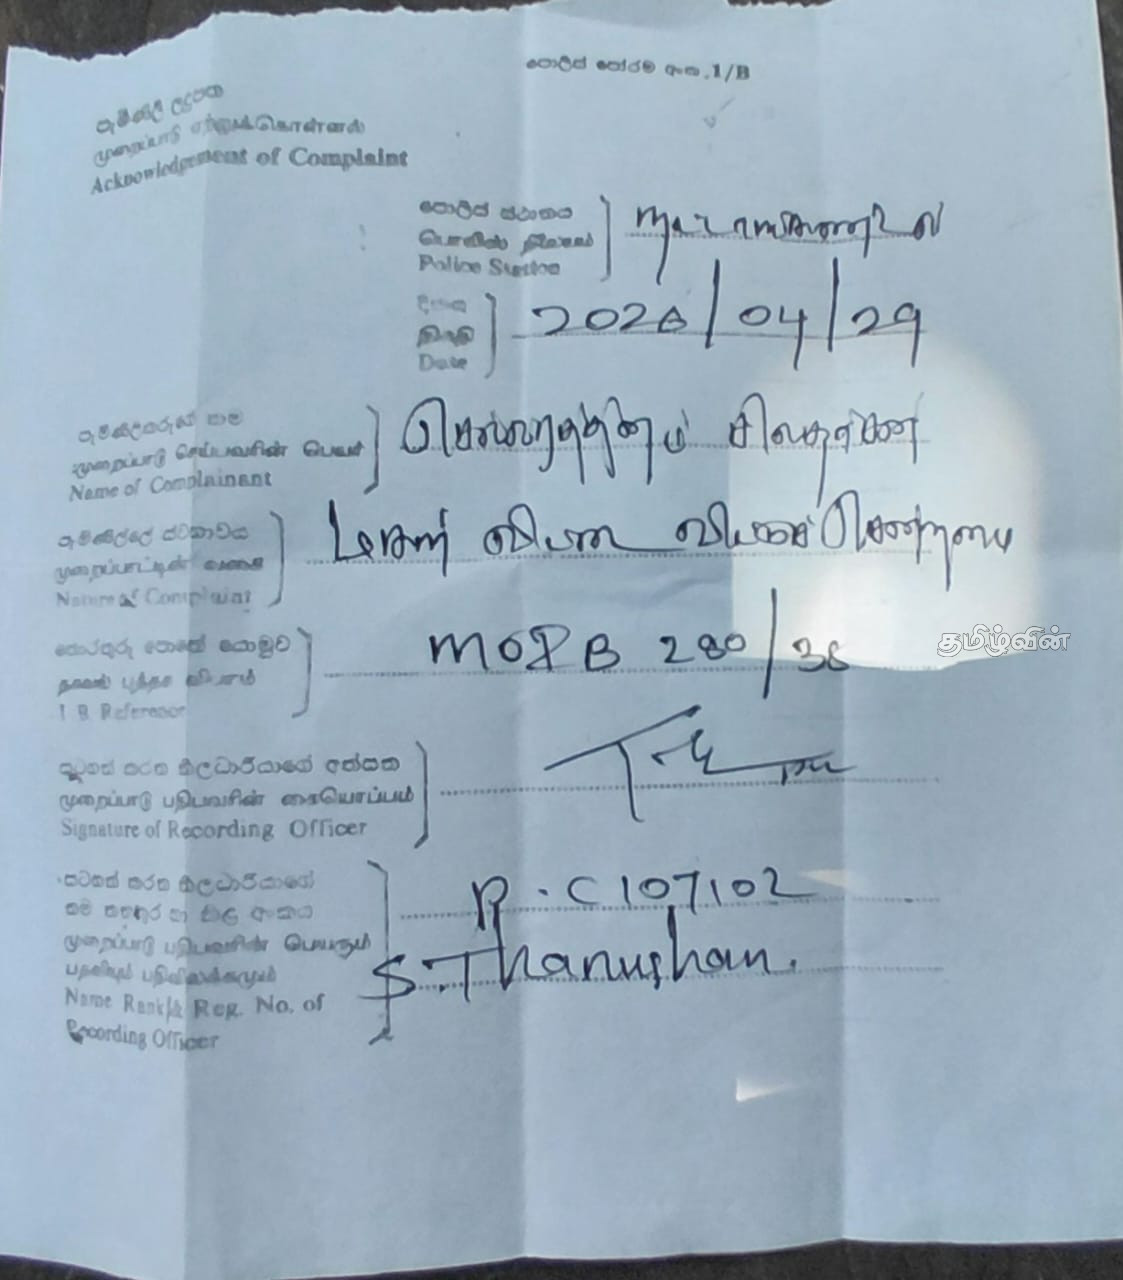 පොලිස් පෝරම අංක.1/B
පැමිණිලි ලදුපත
முறைப்பாடு ஏற்றுக்கொள்ளல்
Acknowledgement of Complaint
පොලිස් ස්ථානය
பொலிஸ் நிலையம்
Police Station
දිනය
திகதி
Date
2026/04/29
පැමිණිලිකරුගේ නම
முறைப்பாடு செய்பவரின் பெயர்
Name of Complainant
පැමිණිල්ලේ ස්වභාවය
முறைப்பாட்டின் வகை
Nature of Complaint
தமிழ்வின்
තොරතුරු පොතේ යොමුව
தகவல் புத்தக விபரம்
I B Reference
280/38
සටහන් කරන නිලධාරියාගේ අත්සන
முறைப்பாடு பதிபவரின் கையொப்பம்
Signature of Recording Officer
සටහන් කරන නිලධාරියාගේ
නම තනතුර හා නිල අංකය
முறைப்பாடு பதிபவரின் பெயரும்
பதவியும் பதிவிலக்கமும்
Name Rank & Reg. No. of
Recording Officer
P.C 107102
S.Thanushan.